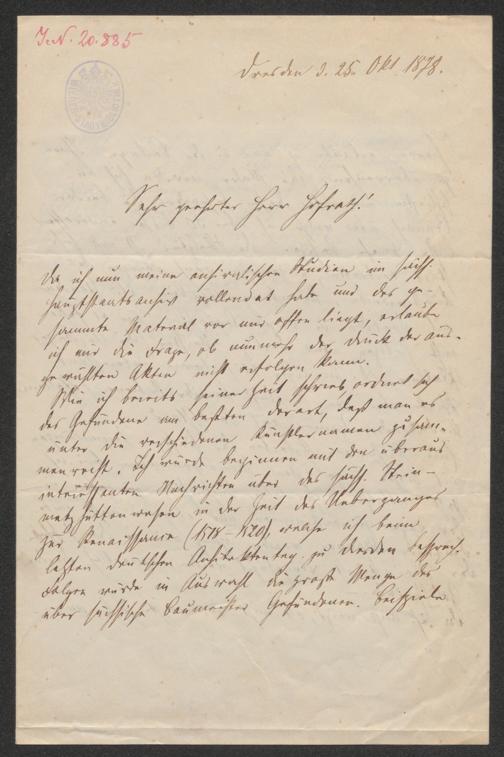 J.N. 20.885
Dresden d. 25. Okt. 1878.
Sehr geehrter Herr Hofrath!
Da ich nun meine archivalischen Studien im sächs.
Hauptstaatsarchiv vollendet habe und das ge-
sammte Material vor mir offen liegt, erlaube
ich mir die Frage, ob nunmehr der Druck der aus-
gewählten Akten nicht erfolgen kann.
Wie ich bereits seiner Zeit schrieb ordnet sich
das Gefundene am besten derart, daß man es
unter die verschiedenen Künstlernamen zusam-
menreiht. Ich würde beginnen mit den überaus
interessanten Nachrichten über das sächs. Stein-
metzhüttenwesen in der Zeit des Ueberganges
zur Renaissance (1518–1520), welche ich beim
letzten deutschen Architektentag zu Dresden besprach.
Folgen würde in Auswahl die große Menge des
über sächsische Baumeister Gefundenen. Beispiele